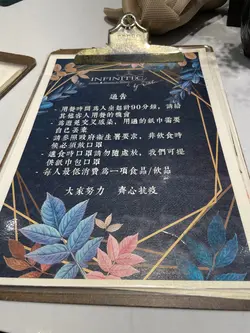 INFINITEA
通告
- 用餐時間為入座起計90分鐘，請給
其他客人用餐的機會
- 為避免交叉感染，用過的紙巾需要
自己丟棄
- 請參照政府衛生署要求，非飲食時
候必須戴口罩
- 進食時口罩請勿隨處放，我們可提
供紙巾包口罩
- 每人最低消費為一項食品/飲品
大家努力 齊心抗疫